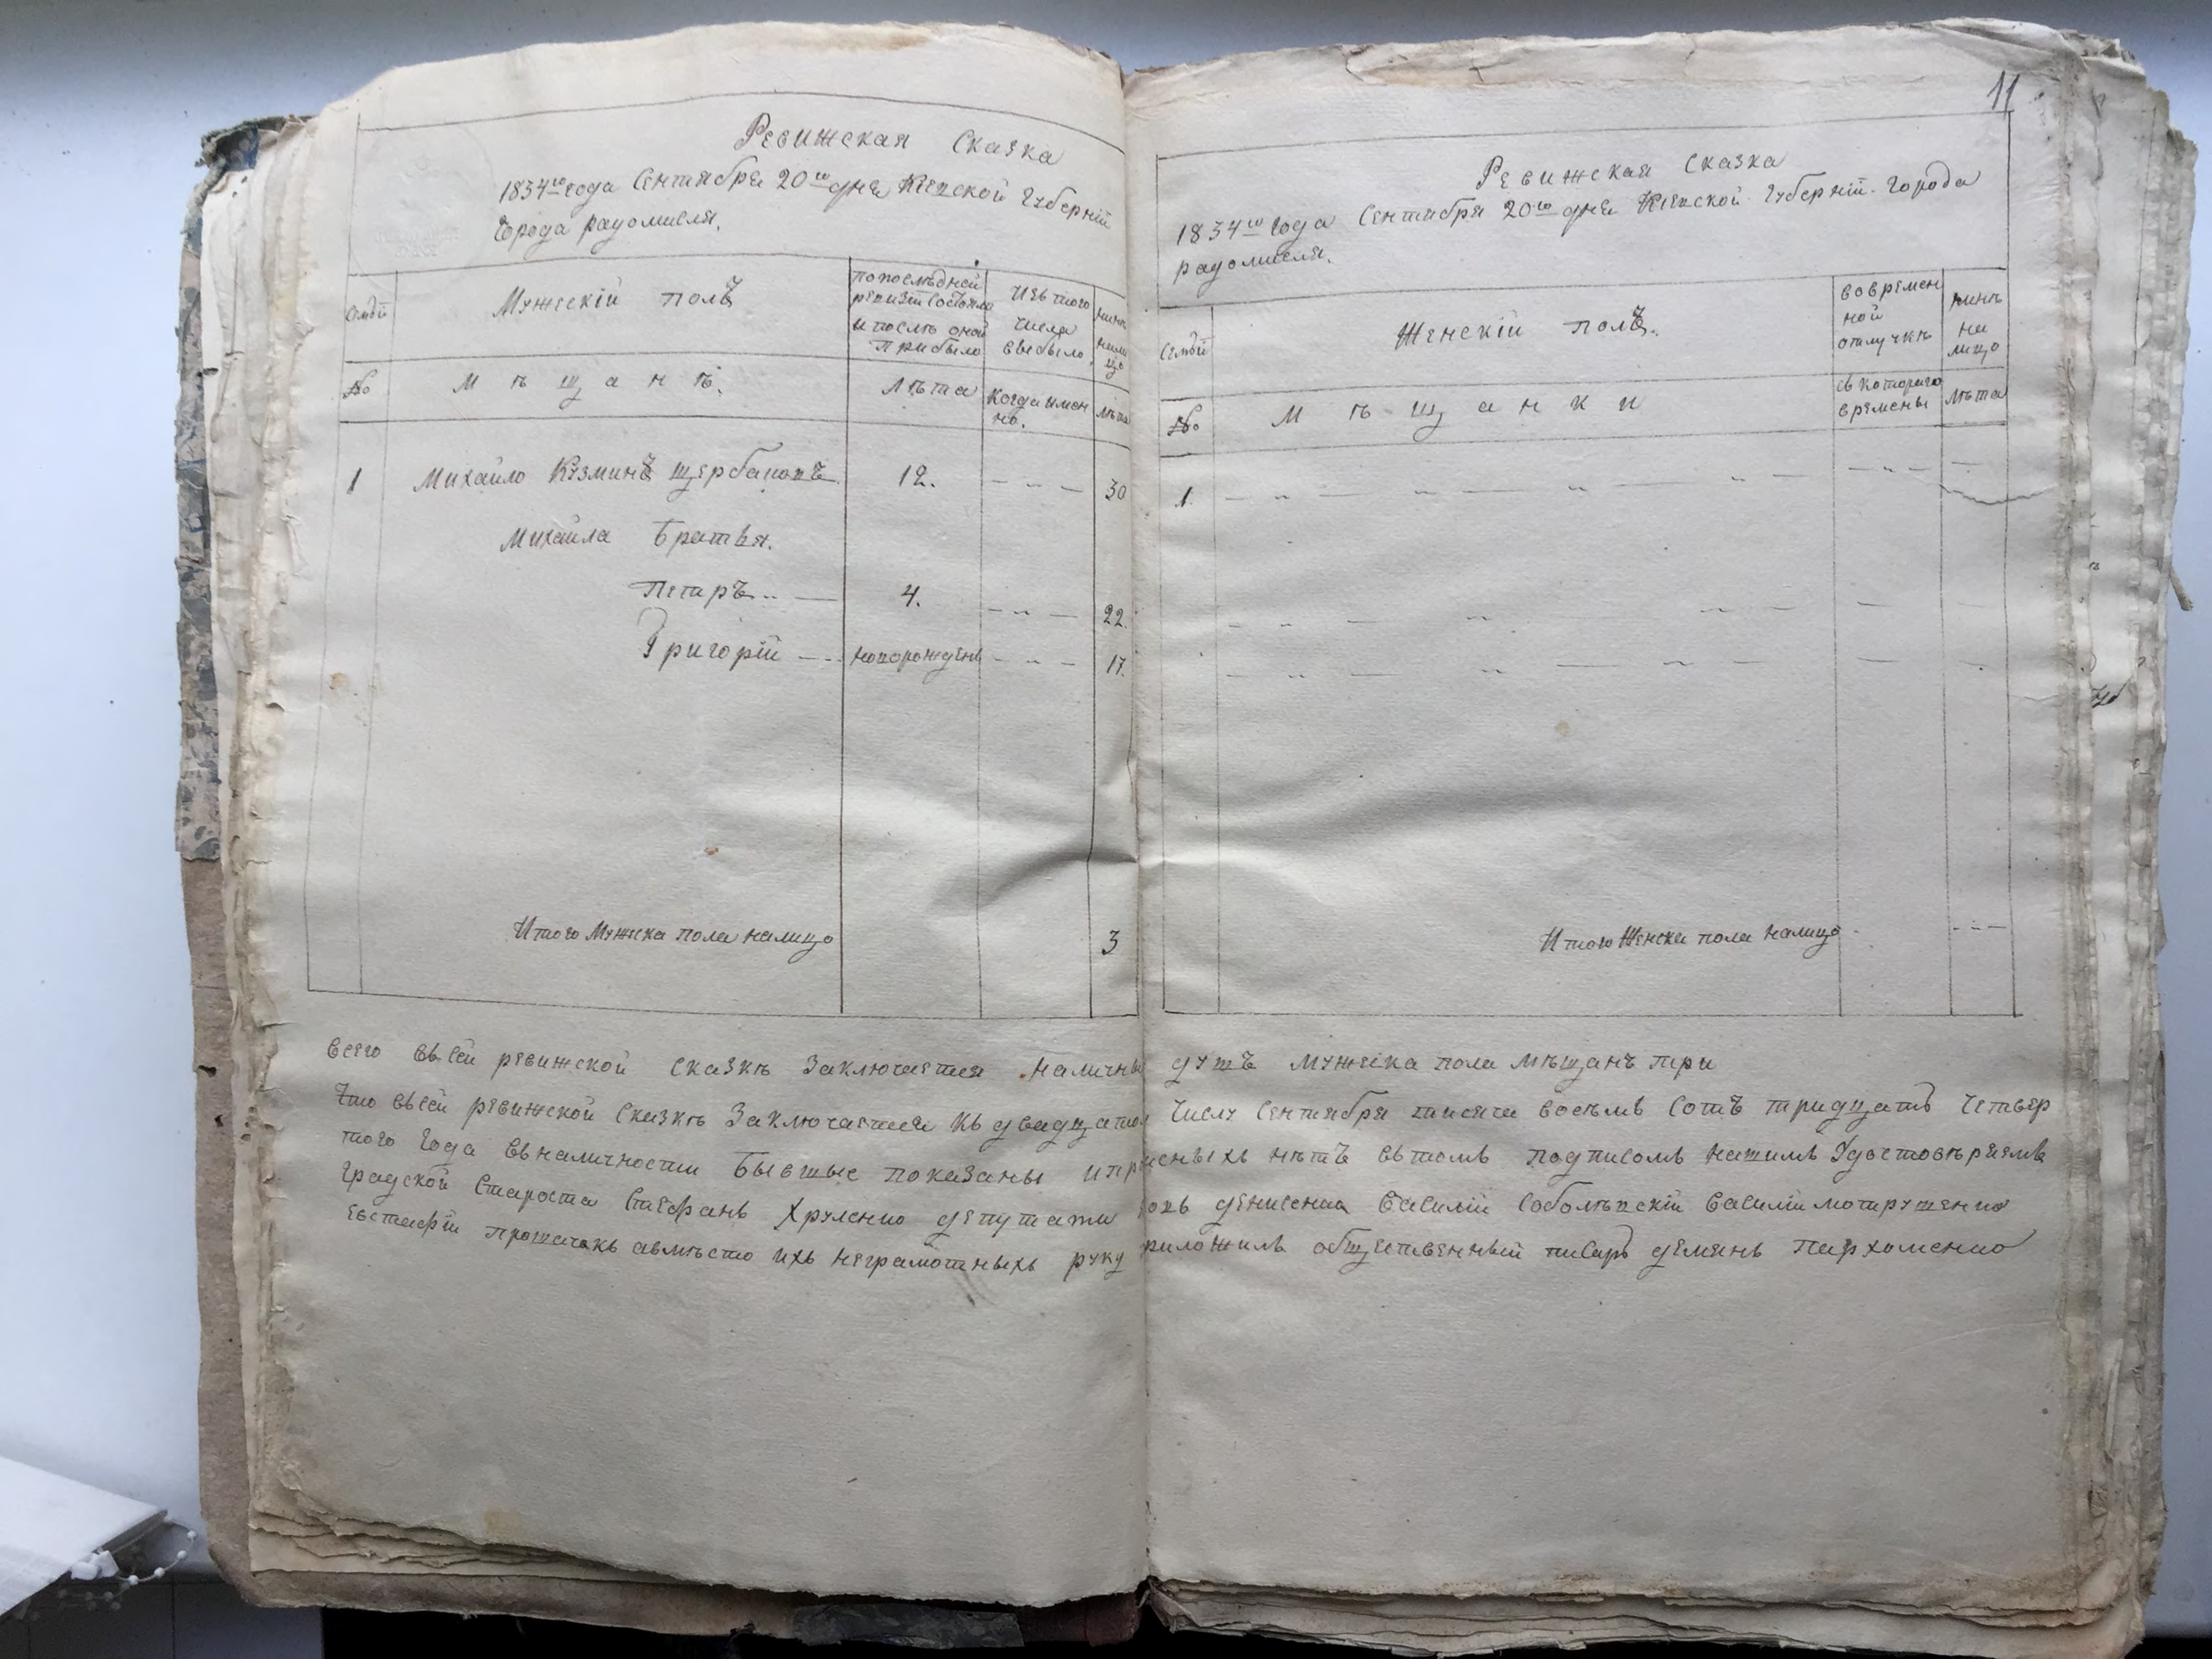 Ревижская Сказка
1834го года Сентября 20го дня Кіевской Губерніи
Города радомысля.
Семьи
Мужескій полъ
попоследней
ревизіи состояло
и после оной
прибыло
Изъ того
числа
выбыло
ныне
нали
цо
№
Мѣщанѣ.
Лѣта
Когда имен
но.
лѣта
1 Михайло Кузминъ щербаковъ 12. 30
Михайла братья.
Петръ 4. 22.
Григорій новорожденъ 17.
Итого Мужеска пола налицо 3
11
Ревижская Сказка
1834го года Сентября 20го дня Кіевской Губерніи Города
радомысля.
Семьи
Женскій полъ.
вовремен
ной
отлучкѣ
нынѣ
на
лицо
№
Мѣщанки
съ котораго
времены
лѣта
1.
Итого Женска пола налицо
всего въ сей ревижской сказкѣ Заключается наличны душъ мужеска пола мѣщанъ три
Что въсей ревижской Сказкѣ Заключается къ двадцатом Числу Сентября тисяча восѣмь сотъ тридцать четвер
того года въналичности бывшые показаны ипр исныхъ нѣтъ втомъ подписомъ нашимъ Удостовѣряемъ
градской Староста Стефанъ Хруленко депутати Денисенко Василій Соболѣвскій Василій мотрушенко
Евстафій авмѣсто ихъ неграмотныхъ руку риложилъ общественный писаръ демянъ пархоменко